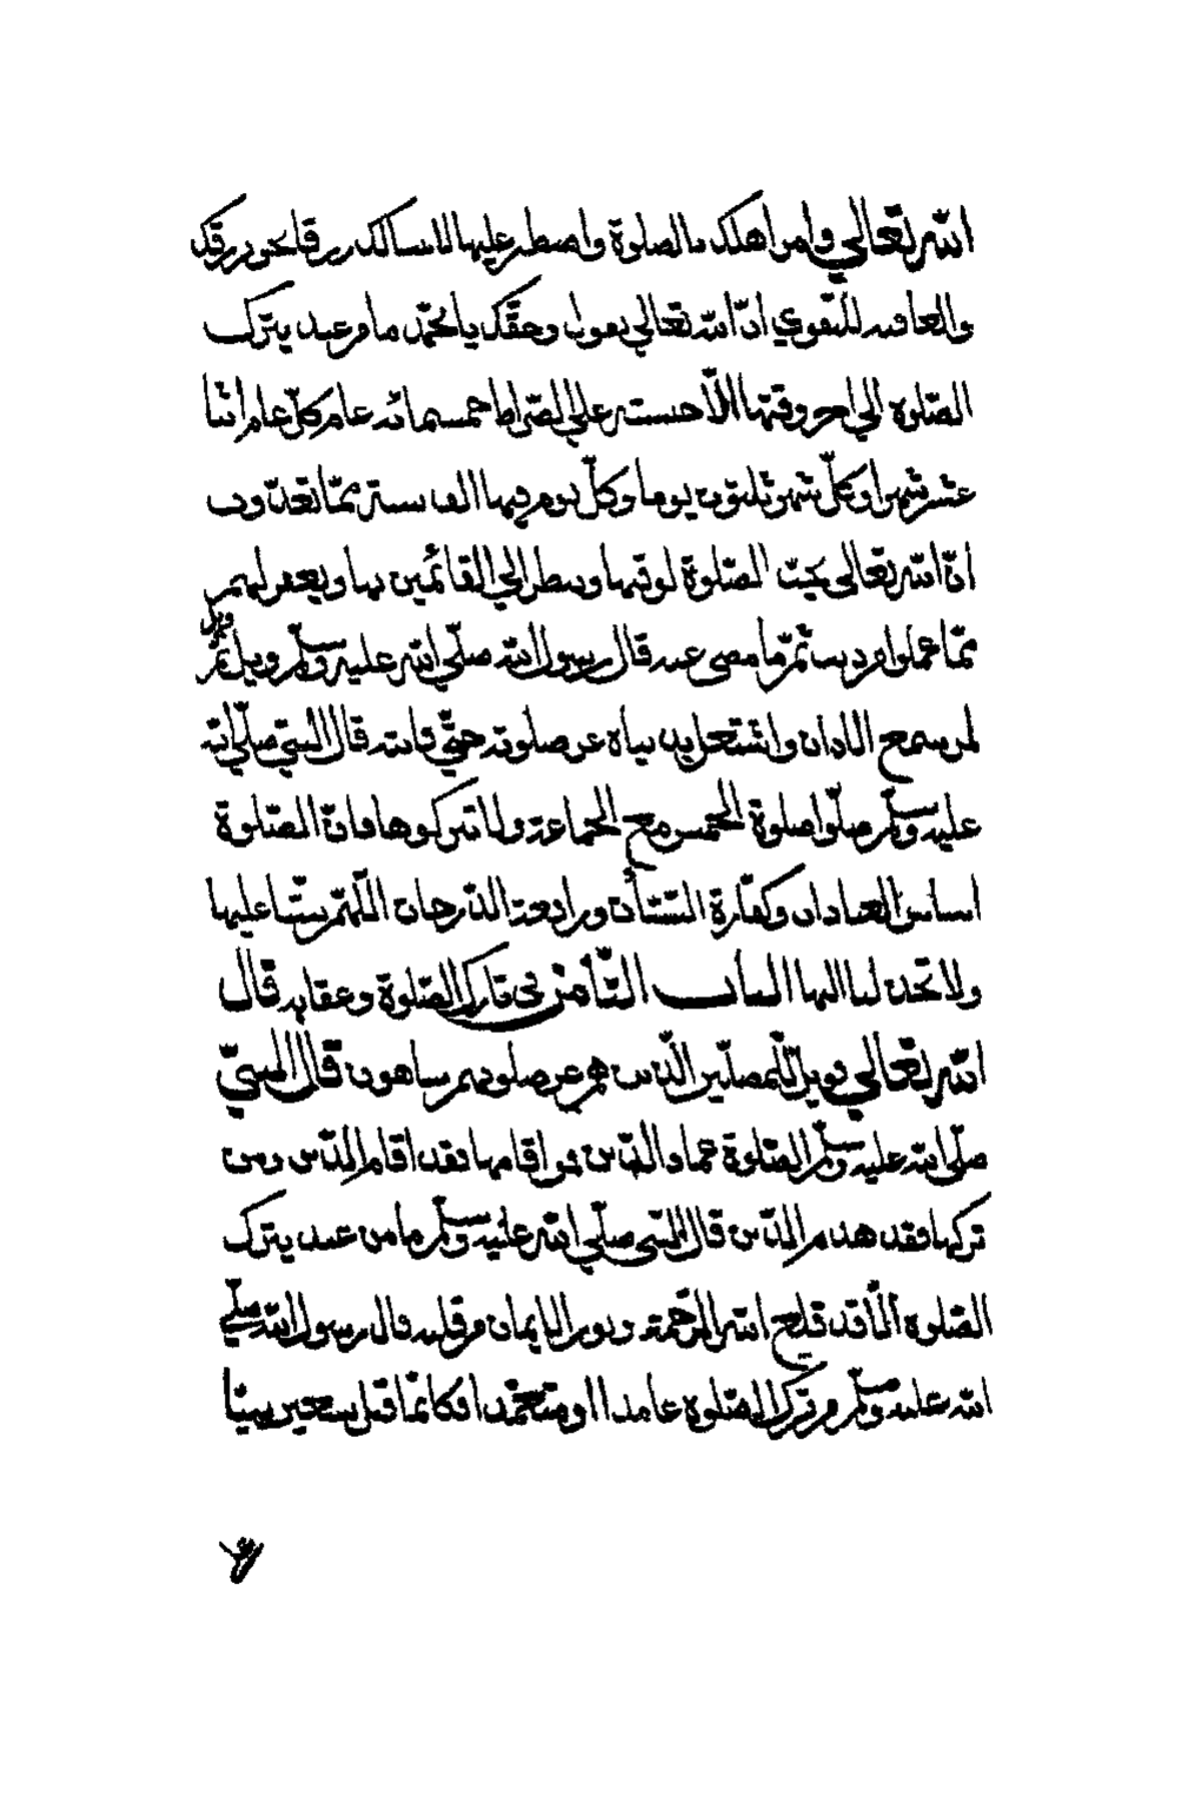 الله تعالى وامر اهلك بالصلوة واصطبر عليها لا نسالك رزقا نحن نرزقك
والعاقبه للتقوي انّ الله تعالى يقول وحقّك يا محمّد ما من عبد يترك
الصّلوة الي اخر وقتها الّا حسبته علي الصّراط خمسمائه عام كلّ عام اثنا
عشر شهرا وكلّ شهر ثلثون يوما وكلّ يوم فيها الف سنة ممّا تعدّون
انّ الله تعالى يحبّ الصّلوة لوقتها وينظر الي القائمين بها ويغفر لهم
ممّا عملوا من ذنب ثمّ ما مضي عنه قال رسول الله صلّي الله عليه وسلّم ويل ثمّ ويل
لمن سمع الاذان واشتغل بدنياه عن صلوته حتّي فاتته قال النّبيّ صلّي الله
عليه وسلّم صلّوا صلوة الخمس مع الجماعة ولا تتركوها فانّ الصّلوة
اساس العبادات وكفّارة السّيّئات ورافعة الدّرجات اللّهمّ ثبّتنا عليها
ولا تخذلنا اليها الباب الثّامن في تارك الصّلوة وعقابه قال
الله تعالي فويل للمصلّين الّذين هم عن صلوتهم ساهون قال النبيّ
صلّي الله عليه وسلّم الصّلوة عماد الدّين فمن اقامها فقد اقام الدّين ومن
تركها فقد هدم الدّين قال النّبي صلّي الله عليه وسلّم ما من عبد يترك
الصّلوة الّا قد قلع الله الرّحمة ونور الايمان من قلبه قال رسول الله صلّي
الله عليه وسلّم من ترك الصّلوة عامدا او متعمّدا فكانّما قتل سبعين نبيّا